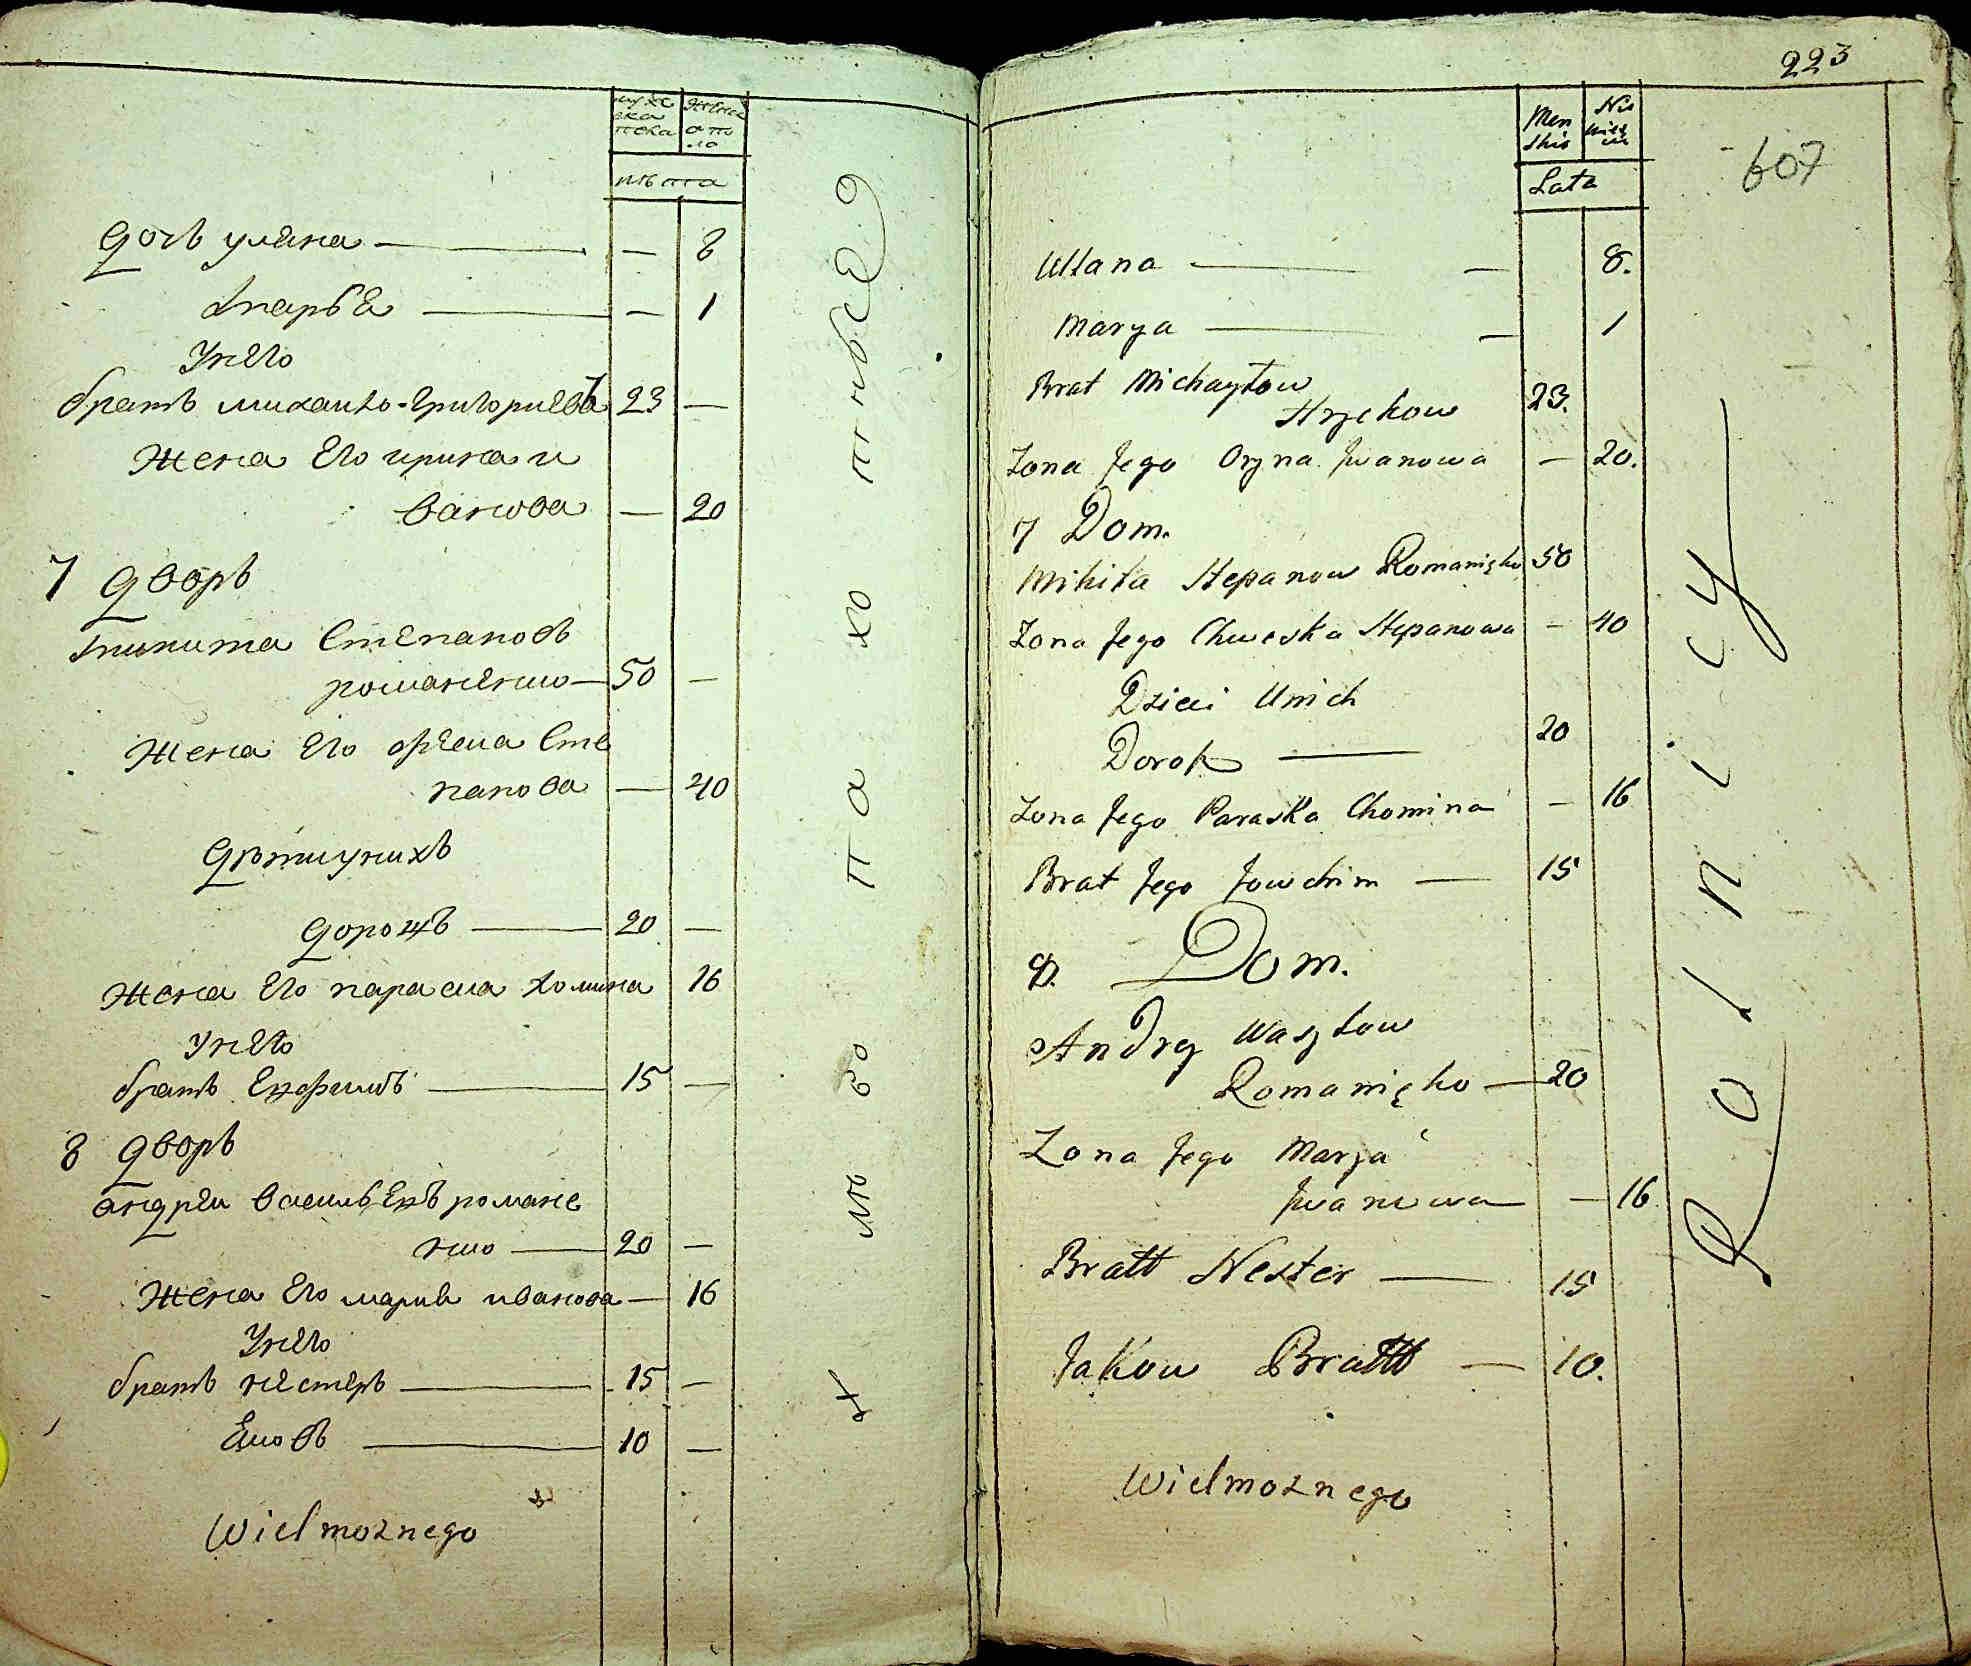 мужеска пола
женска поло
лѣта
дочь уляна — — 8
марья — — 1
У него
братъ михаило григориевъ 23 —
Жена Его ирина и
ванова — 20
7 дворъ
микита Степановъ
романенко — 50 —
Жена Его Сте
панова — 40
дѣти у нихъ
20 —
Жена Его параска хомина 16
У него
братъ — 15 —
8 дворъ
андреи романе
нко — 20 —
Жена Его мария иванова — 16
У него
братъ нестеръ — 15 —
Яковъ — 10 —
Wielmoznego
пахотные
223
607
Men
skie
Nie
wies
cie
Lata
Ullana — — 8.
Marya — — 1
Brat Michayłow
Hryckow 23.
Zona Jego Oryna Iwanowa — 20.
7 Dom.
Mikita Stepanow Romanięko 50
Zona Jego Chweska Stepanowa — 40
Dzieci Unich
Dorof — 20
Zona Jego Paraska Chomina — 16
Brat Jego Jowchim — 15
8. Dom.
Andrey Wasylow
Romanięko — 20
Zona Jego Marya
Iwanowa — 16
Bratt Nester — 15
Jakow Bratt — 10.
Wielmoznego
Rolnicy